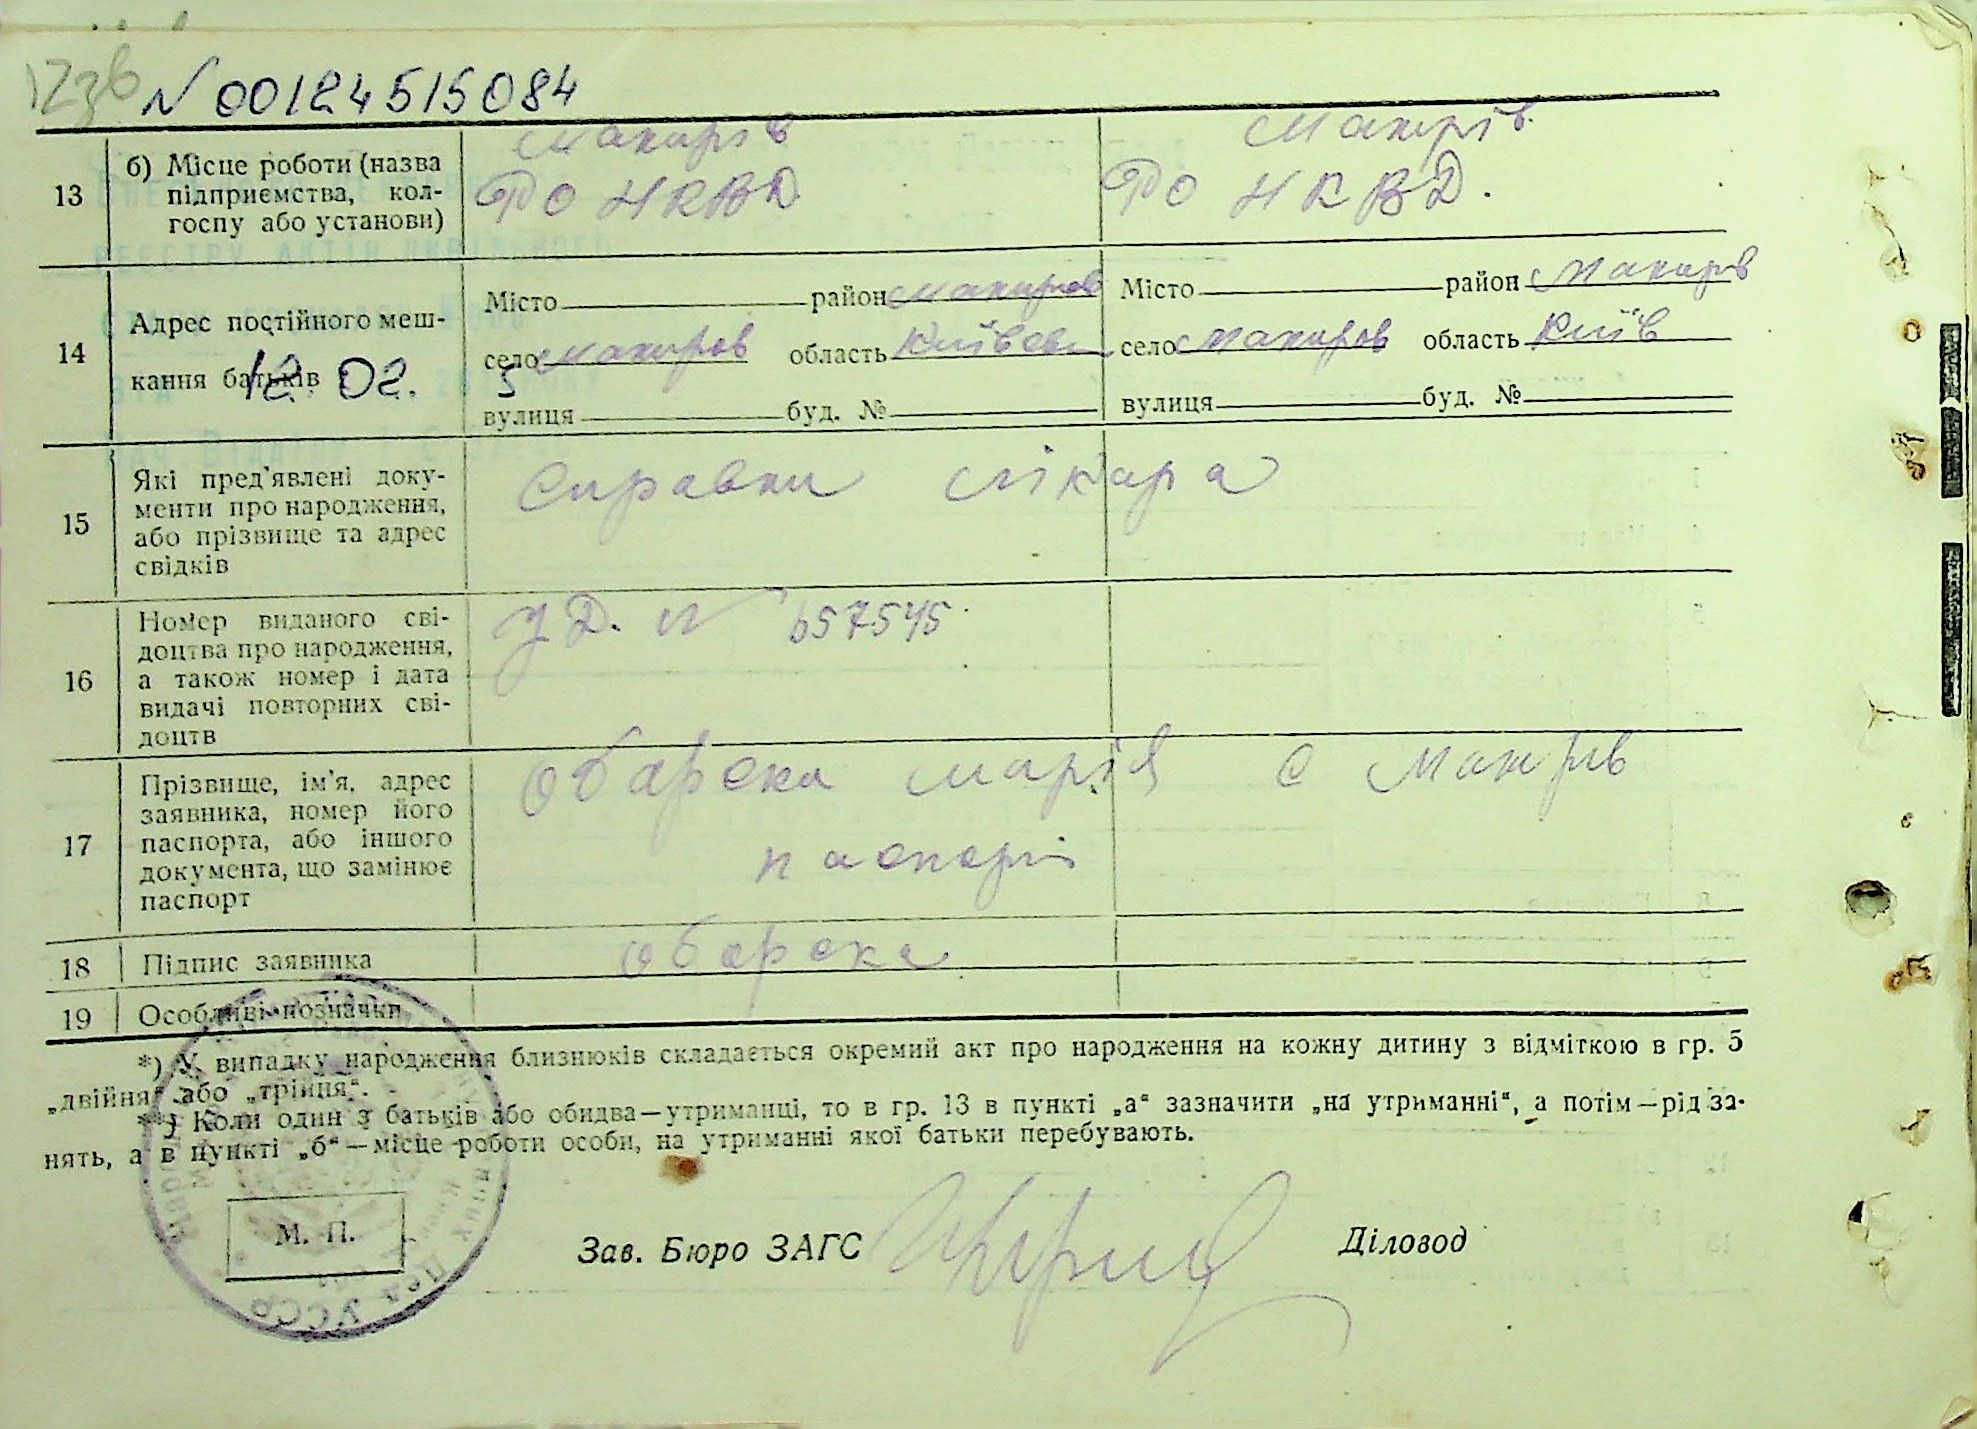 N 00124515084
13
б) Місце роботи (назва
підприємства, кол-
госпу або установи)
Макарів
РО НКВД
Макарів
РО НКВД.
14
Адрес постійного меш-
кання батьків
12. 02.
Місто район Макаров
село Макаров область Київськ
вулиця буд. №
Місто район Макарів
село Макаров область Київ
вулиця буд. №
15
Які пред'явлені доку-
менти про народження,
або прізвище та адрес
свідків
Справки лікара
16
Номер виданого сві-
доцтва про народження,
а також номер і дата
видачі повторних сві-
доцтв
УД. N 657545
17
Прізвище, ім'я, адрес
заявника, номер його
паспорта, або іншого
документа, що замінює
паспорт
Обарска Марія с Макарів
паспорт
18
Підпис заявника
Обарска
19
Особливі позначки
*) У випадку народження близнюків складається окремий акт про народження на кожну дитину з відміткою в гр. 5
„двійня“ або „трійця“.
**) Коли один з батьків або обидва—утриманці, то в гр. 13 в пункті „а“ зазначити „на утриманні“, а потім—рід за-
нять, а в пункті „б“—місце роботи особи, на утриманні якої батьки перебувають.
М. П.
УССР
Зав. Бюро ЗАГС
Діловод